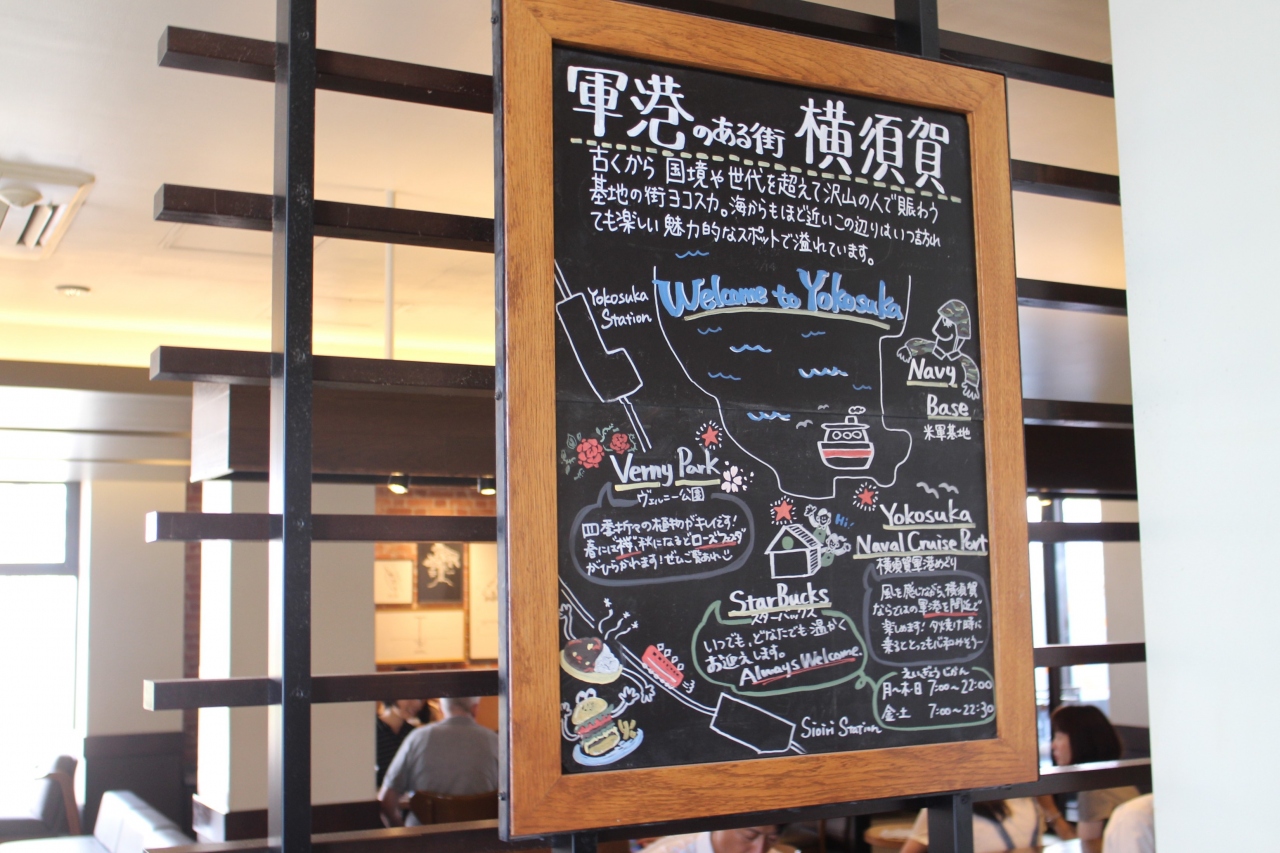 軍港のある街 横須賀
古くから 国境や世代を超えて沢山の人で賑わう
基地の街ヨコスカ。海からもほど近いこの辺りはいつ訪れ
ても楽しい魅力的なスポットで溢れています。
Welcome to Yokosuka
Yokosuka
Station
Navy
Base
米軍基地
Verny Park
ヴェルニー公園
四季折々の植物がキレイです!
春には桜、秋になるとローズフェスタ
がひらかれます!ぜひご覧あれ
Hi!
Yokosuka
Naval Cruise Port
横須賀軍港めぐり
風を感じながら、横須賀
ならではの軍港を間近で
楽しめます! 夕焼け時に
乗るととっても心和みそう~
StarBucks
スターバックス
いつでも、どなたでも温かく
お迎えします。
Always Welcome.
えいぎょうじかん
月~木・日 7:00~22:00
金・土 7:00~22:30
Sioiri Station